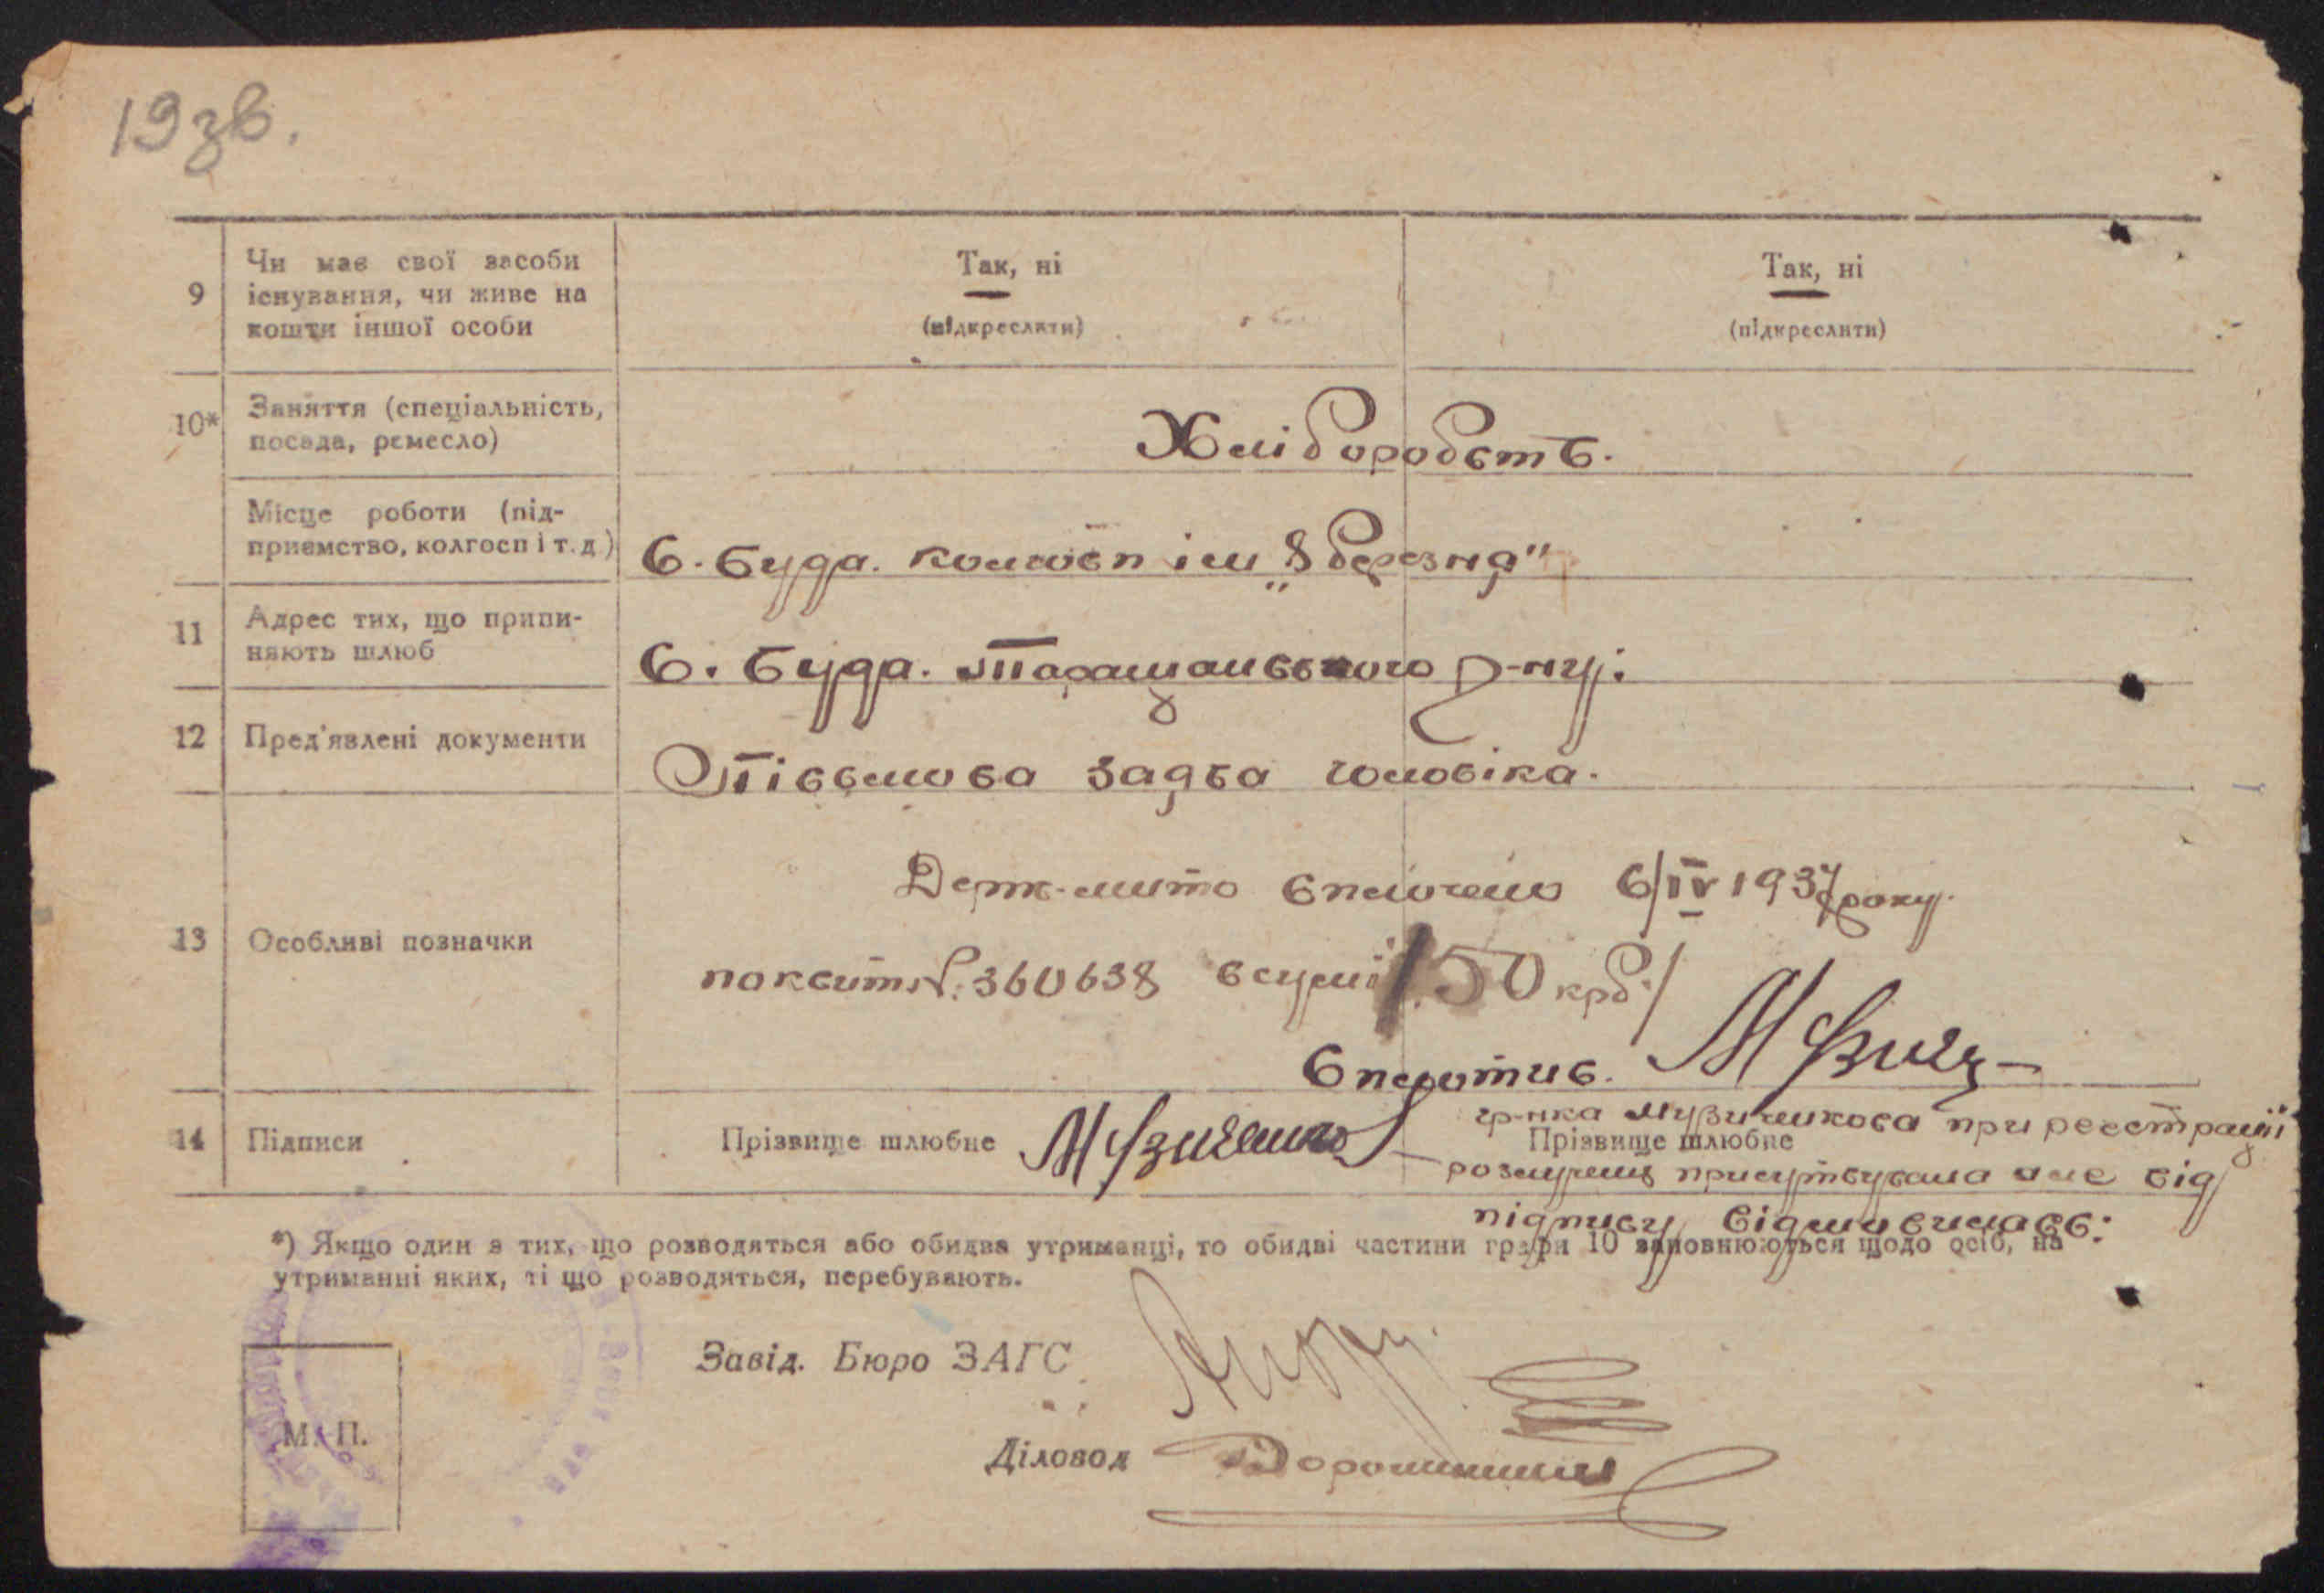 19зв.
9
Чи має свої засоби
існування, чи живе на
кошти іншої особи
Так, ні
(підкреслити)
Так, ні
(підкреслити)
10*
Заняття (спеціальність,
посада, ремесло)
Хліборобств.
Місце роботи (під-
приємство, колгосп і т. д.)
с. Буда. колгосп ім „8 березня"
11
Адрес тих, що припи-
няють шлюб
с. Буда. Таращанського р-ну.
12
Пред'явлені документи
заява чоловіка.
13
Особливі позначки
Держ-мито сплочено 6/IV 1937 року.
по квит №. 360638 в сумі /50 крб./
Сплотив.
14
Підписи
Прізвище шлюбне
гр-нка при реєстрації
Прізвище шлюбне
розлучень присутствувала але від
підпису відмовилась.
*) Якщо один з тих, що розводяться або обидва утриманці, то обидві частини графи 10 заповнюються щодо осіб, на
утриманні яких, ті що розводяться, перебувають.
Завід. Бюро ЗАГС
М. П.
Діловод